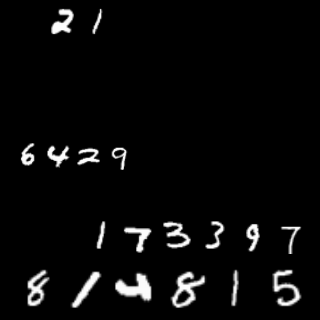 21
6429
173397
814815